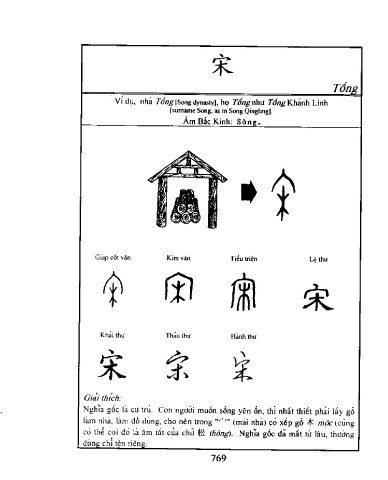 宋
Tống
Ví dụ, nhà Tống [Song dynasty], họ Tống như Tống Khánh Linh
[surname Song, as in Song Qingling].
Âm Bắc Kinh: Sòng.
Giáp cốt văn Kim văn Tiểu triện Lệ thư
宋 宋 宋 宋
Khải thư Thảo thư Hành thư
宋 宋 宋
Giải thích:
Nghĩa gốc là cư trú. Con người muốn sống yên ổn, thì nhất thiết phải lấy gỗ
làm nhà, làm đồ dùng, cho nên trong "宀" (mái nhà) có xếp gỗ 木 mộc (cũng
có thể coi đó là âm tắt của chữ 松 thông). Nghĩa gốc đã mất từ lâu, thường
dùng chỉ tên riêng.
769